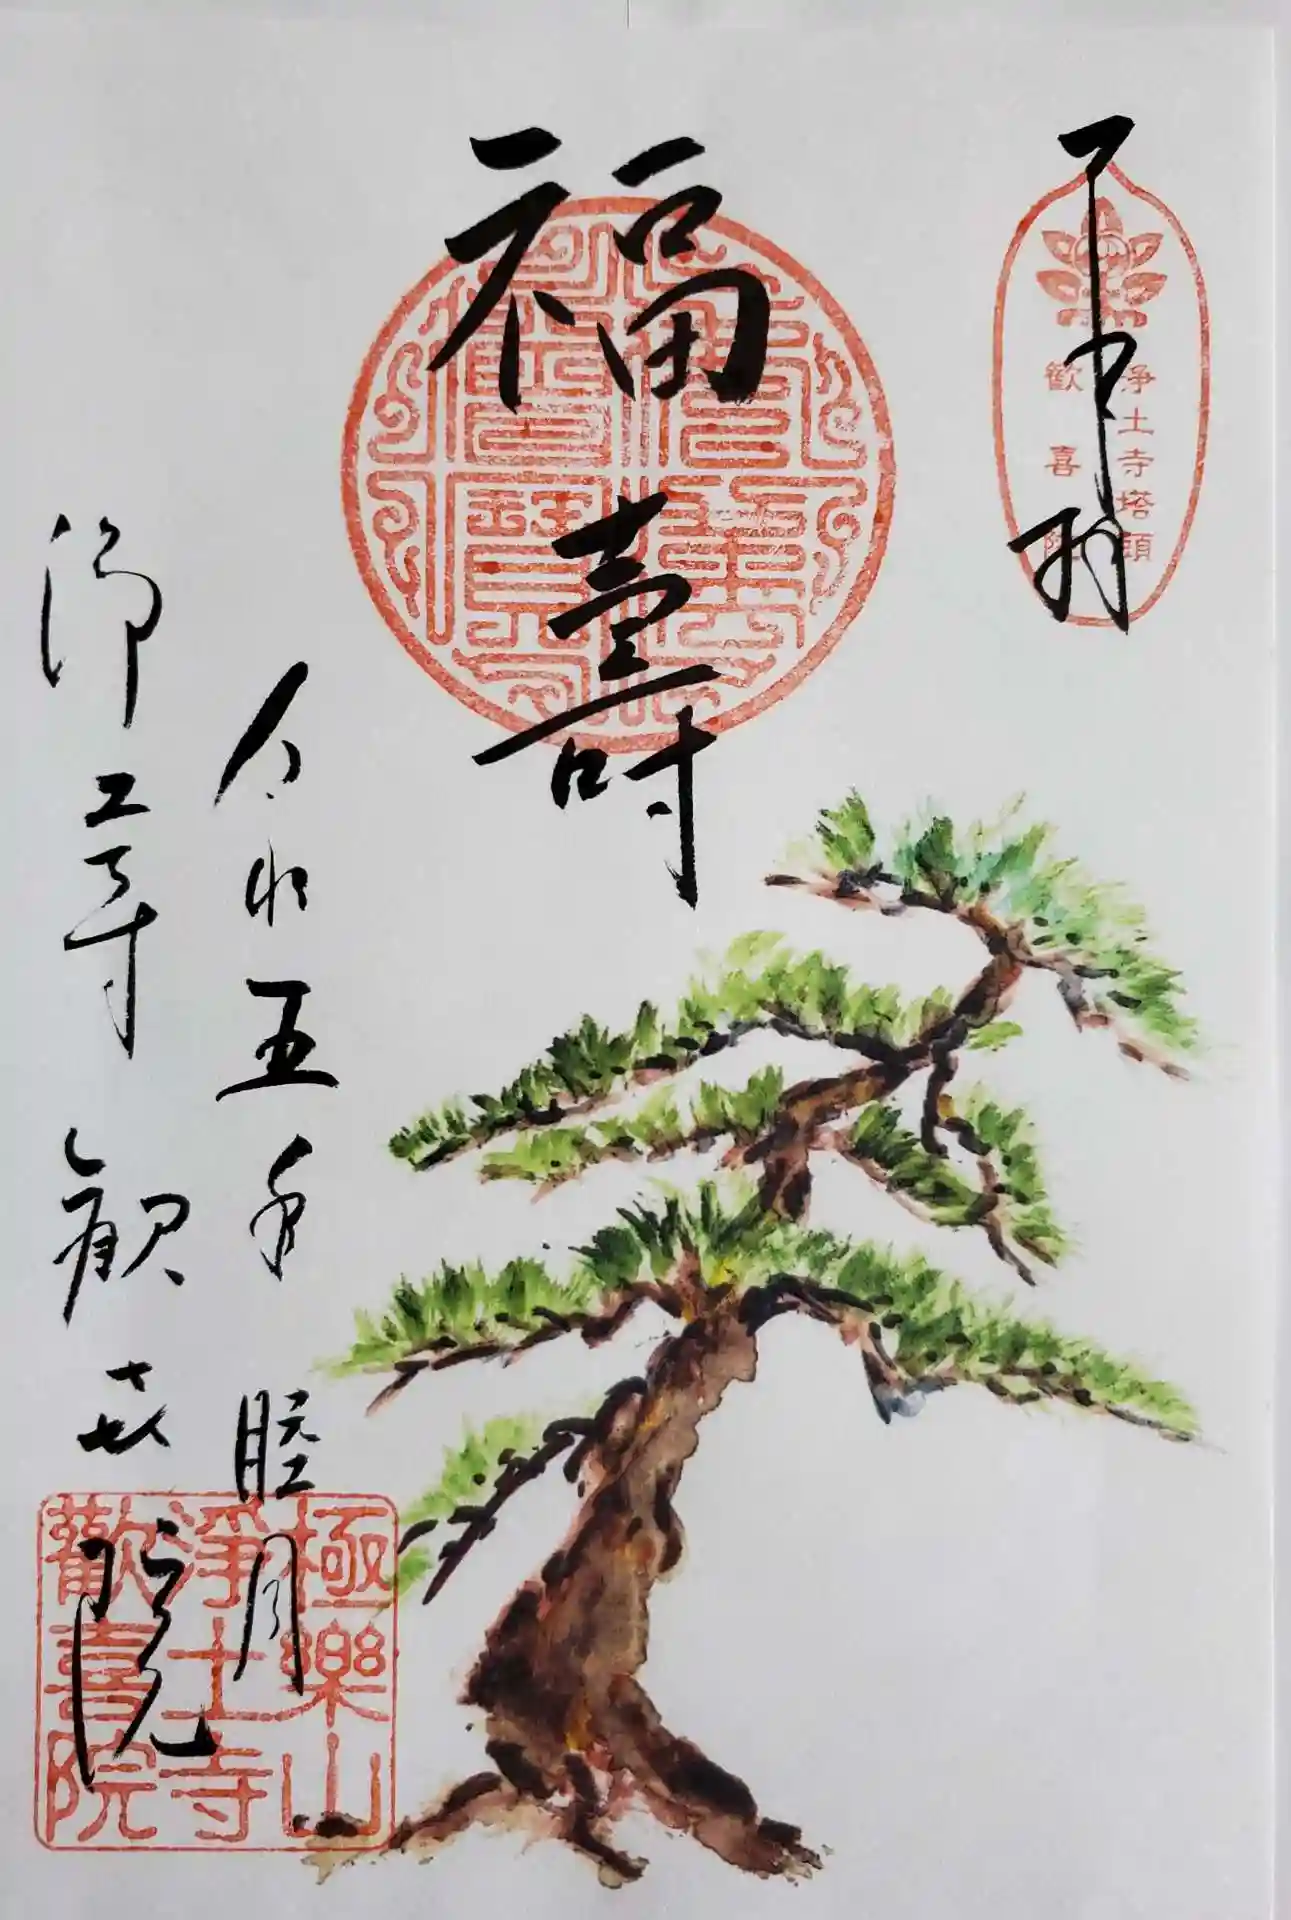 奉拝
浄土寺塔頭
歓喜院
福壽
令和五年 睦月
浄土寺 歓喜院
極樂山
淨土寺
歡喜院